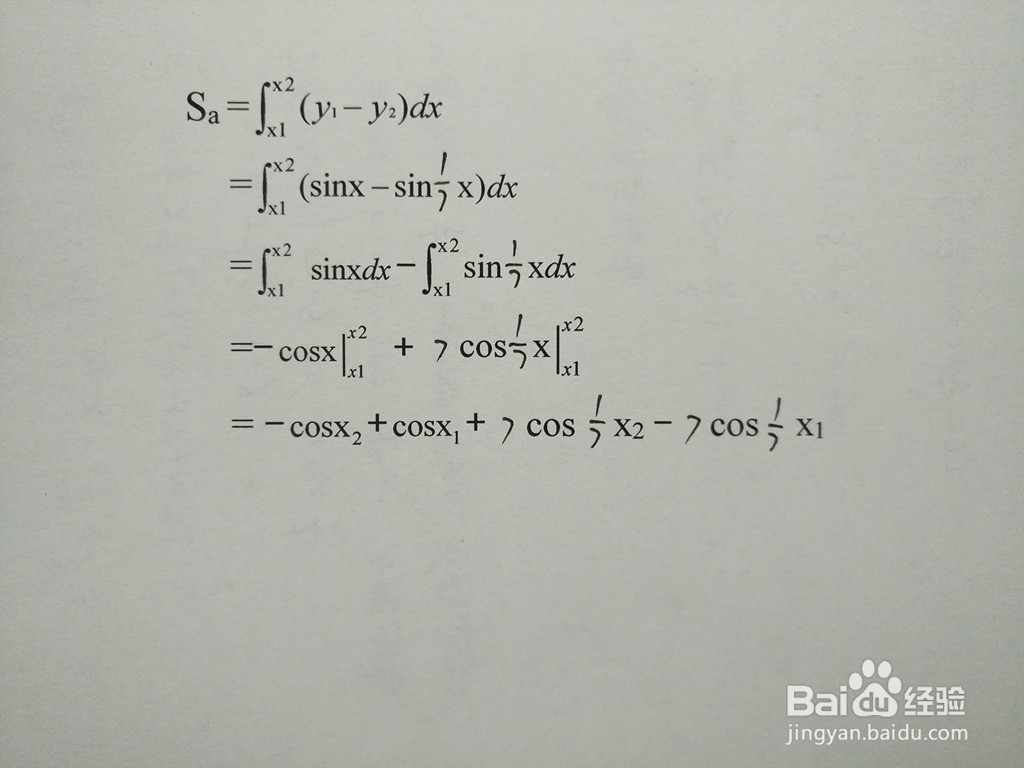 Sa = ∫_{x1}^{x2} (y₁ − y₂)dx
= ∫_{x1}^{x2} (sinx − sin 1/7 x)dx
= ∫_{x1}^{x2} sinxdx − ∫_{x1}^{x2} sin 1/7 xdx
= − cosx |_{x1}^{x2} + 7 cos 1/7 x |_{x1}^{x2}
= − cosx₂ + cosx₁ + 7 cos 1/7 x₂ − 7 cos 1/7 x₁
Baidu 经验
jingyan.baidu.com